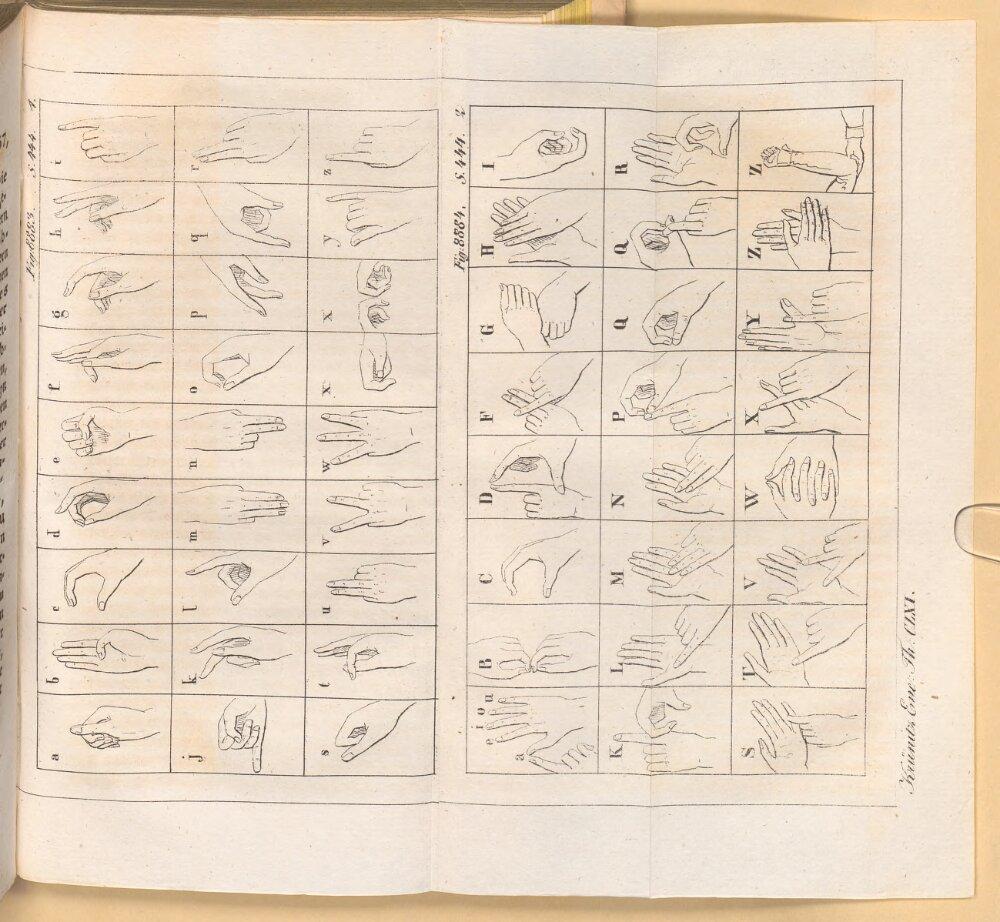 Fig. 8883. S. 444. 1.
a b c d e f g h i
j k l m n o p q r
s t u v w x x y z
Fig. 8884. S. 444. 2.
a e i o u B C D F G H I
K L M N P Q Q R
S T V W X Y Z Z
Krünitz Enc. Th. CLXI.